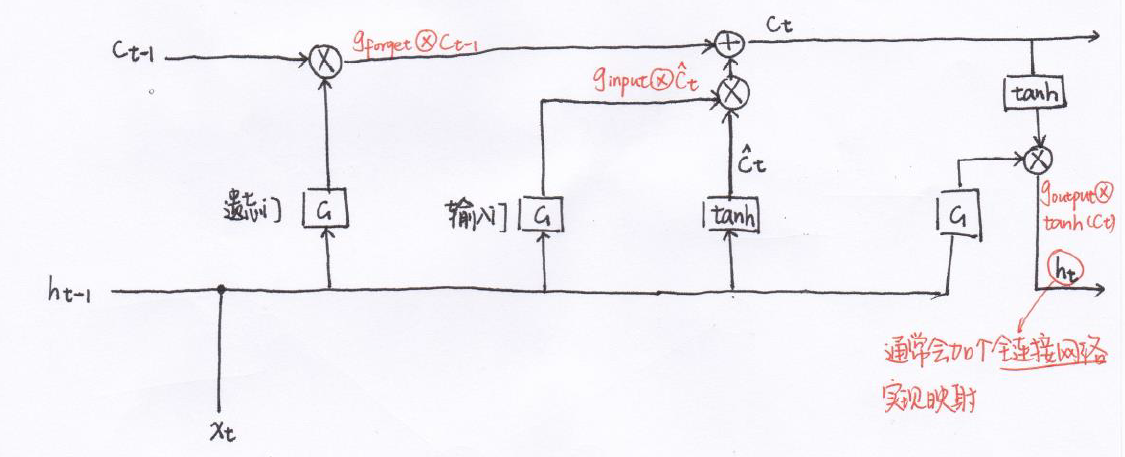 Ct-1
gforget⊗Ct-1
+
Ct
×
ginput⊗Ĉt
×
tanh
×
Ĉt
遗忘门
G
输入门
G
tanh
G
goutput⊗
tanh(Ct)
ht-1
ht
通常会加个全连接网络
实现映射
xt